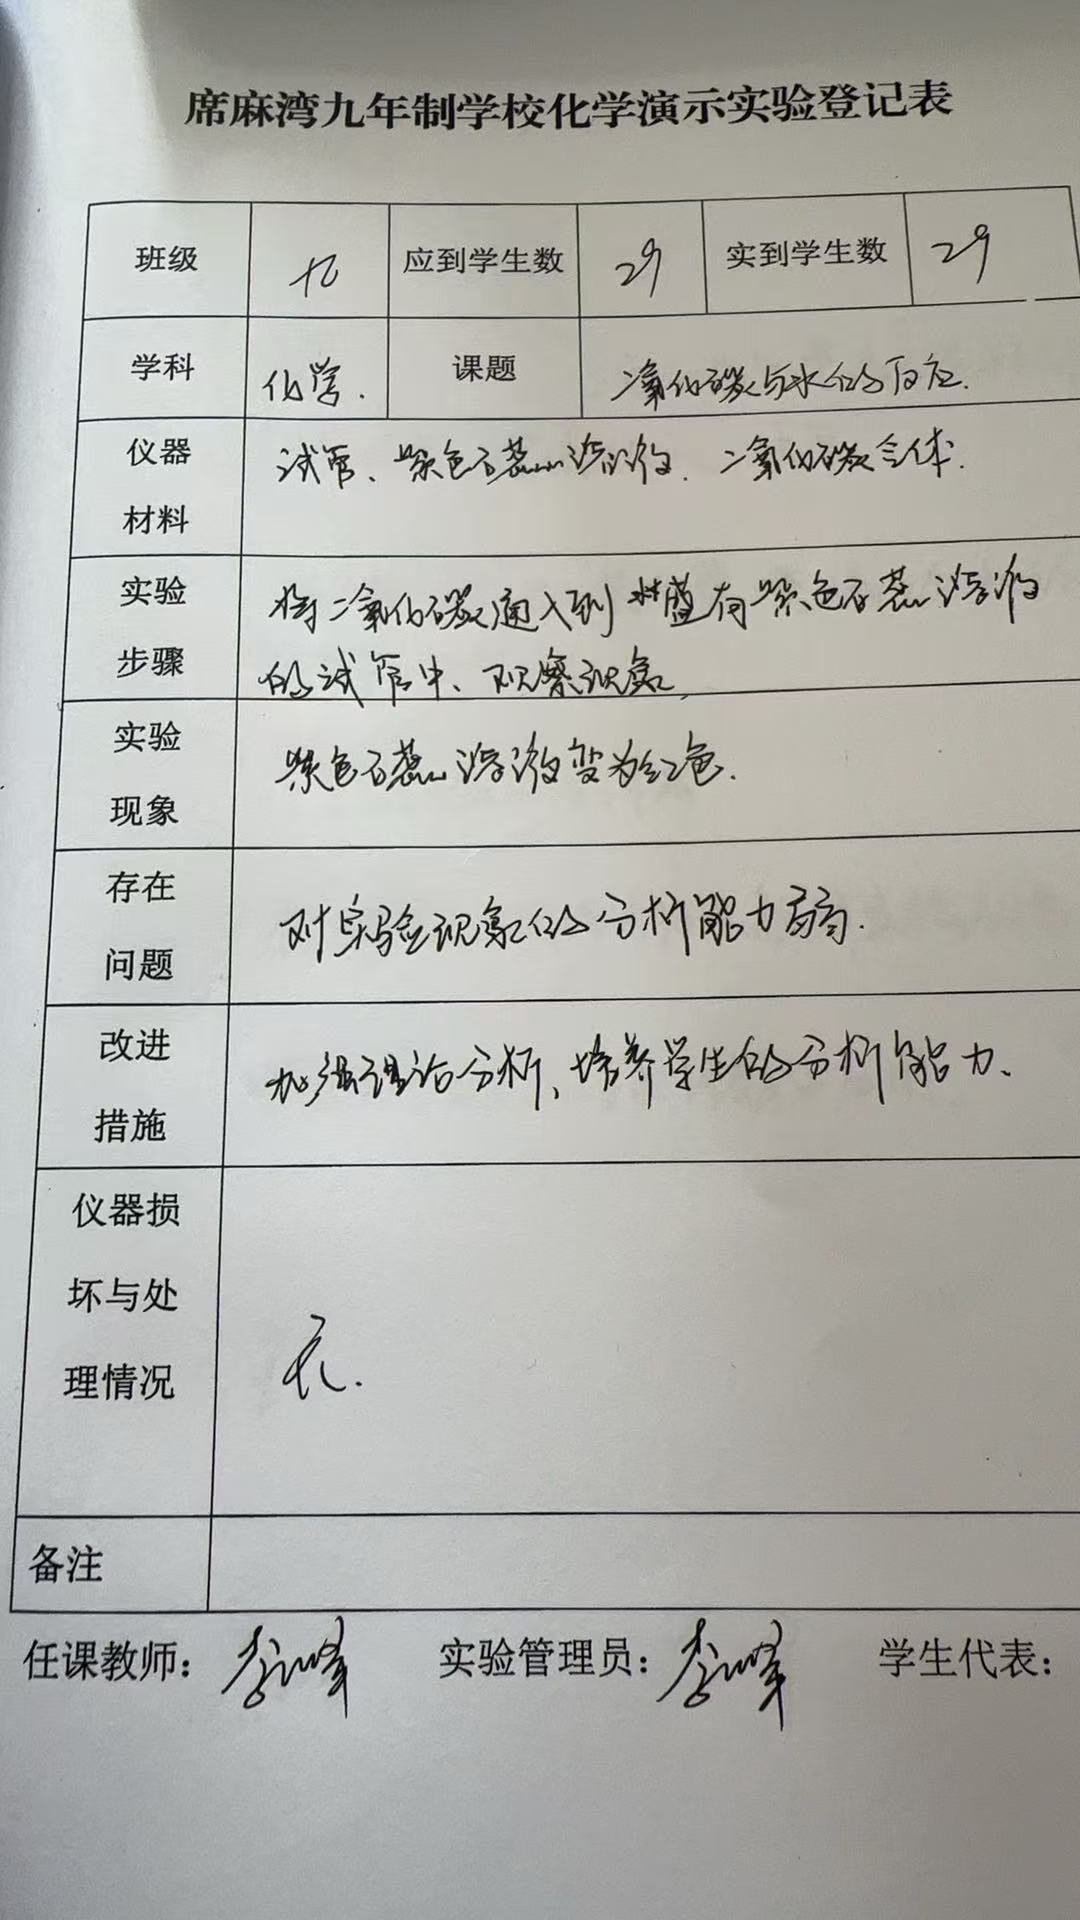 席麻湾九年制学校化学演示实验登记表
班级 九 应到学生数 29 实到学生数 29
学科 化学. 课题 二氧化碳与水的反应.
仪器材料 试管、紫色石蕊溶液、二氧化碳气体.
实验步骤 将二氧化碳通入到盛有紫色石蕊溶液
的试管中、观察现象
实验现象 紫色石蕊溶液变为红色.
存在问题 对实验现象的分析能力弱.
改进措施 加强理论分析、培养学生的分析能力、
仪器损坏与处理情况 无.
备注
任课教师: 实验管理员: 学生代表: